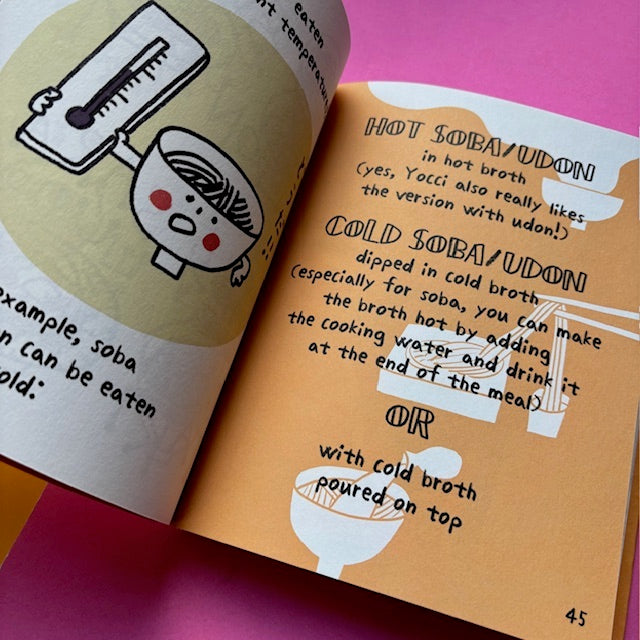 eaten
nt temperature
example, soba
n can be eaten
cold:
HOT SOBA/UDON
in hot broth
(yes, Yocci also really likes
the version with udon!)
COLD SOBA/UDON
dipped in cold broth
(especially for soba, you can make
the broth hot by adding
the cooking water and drink it
at the end of the meal)
OR
with cold broth
poured on top
45